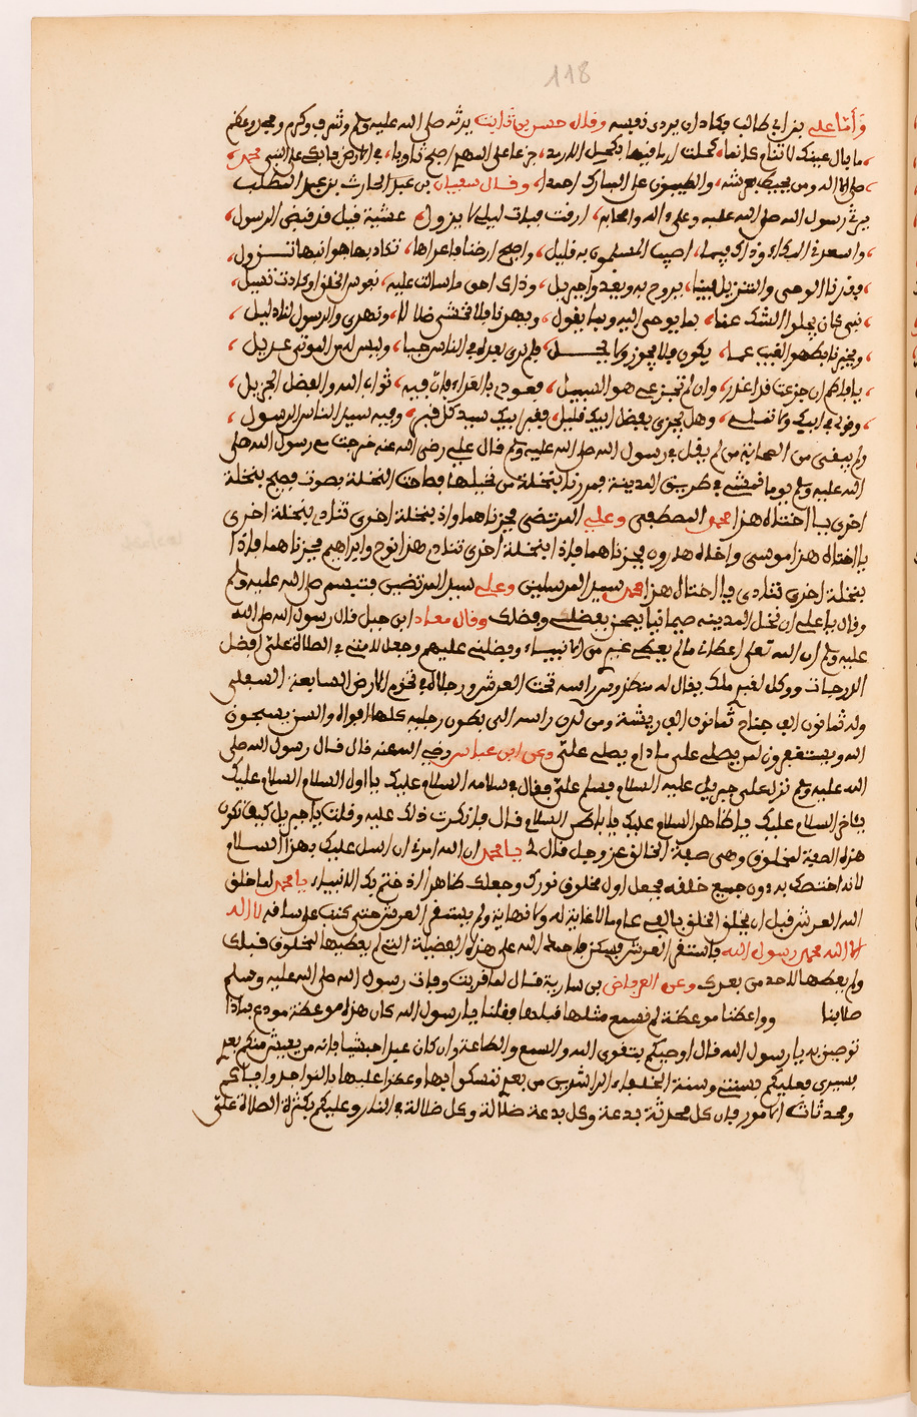 118
وأما علي بن أبي طالب فكاد ان يردى نفسه وقال حسن بن ثابت يرثه صلى الله عليه وسلم وشرف وكرم ومجد وعظم
ما بال عينك لا تنام كأنما، كحلت اماقيها بكحيل الارمد، جزعا على المهدي اصبح ثاويا، في الارض فابك على النبي محمد،
صلى الاله ومن يحيط بعرشه، والطيبون على المبارك احمدا، وقال سفيان بن عبد الحارث بن عبد المطلب
يرثي رسول الله صلى الله عليه وعلى ءاله واصحابه، ارقت فبات ليلي لا يزول، عشية قيل قد قبض الرسول،
واسعدني البكاء وذاك فيما، اصيب المسلمون به قليل، واصبح ارضنا مما عراها، تكاد بها جوانبها تزول،
فقدنا الوحي والتنزيل فينا، يروح به ويغدو جبريل، وذاك احق ما سالت عليه، نفوس الخلق او كادت تسيل،
نبي كان يجلوا الشك عنا، بما يوحى اليه وبما يقول، ويهدنا فلا نخشى ضلالا، ونهدى والرسول لنا دليل،
ويخبرنا بظهر الغيب عما، يكون فلا يجوز ولا يحـــل، فلم نرى بعده في الناس حيا، وليس له من الموتى عديل،
يا فاطم ان جزعت فذا عذر، وان لم تجزعي هو السبيل، فعودي بالعزاء فان فيه، ثواب الله والفضل الجزيل،
وقولي في ابيك ولا تملي، وهل يجزي بفضل ابيك قليل، فقبر ابيك سيد كل قبر، وفيه سيد الناس الرسول،
ولم يبقى من الصحابة من لم يقل في رسول الله صلى الله عليه وسلم قال علي رضي الله عنه خرجت مع رسول الله صلى
الله عليه وسلم يوما نمشي في طريق المدينة فمررنا بنخلة من نخيلها فصاحت النخلة بصوت فصيح بنخلة
اخرى يا اختاه هذا محمد المصطفى وعلي المرتضى فجزناهما واذ بنخلة اخرى تنادي بنخلة اخرى
يا اختاه هذا موسى واخاه هارون فجزناهما فاذا بنخلة اخرى تنادي هذا نوح وابراهيم فجزناهما فاذا
بنخلة اخرى تنادي يا اختاه هذا محمد سيد المرسلين وعلي سيد المرتضين فتبسم صلى الله عليه وسلم
وقال يا علي ان نخل المدينة صيحانيا يصحن بفضلي وفضلك وقال معاذ ابن جبل قال رسول الله صلى الله
عليه وسلم ان الله تعلى اعطاني ما لم يعطي غيري من الانبياء وفضلني عليهم وجعل لامتي في الصلاة علي افضل
الدرجات ووكل لقبري ملك يقال له منطروس راسه تحت العرش ورجلاه في تخوم الارض السابعة السفلى
وله ثمانون الف جناح ثمانون الف ريشة ومن لدن راسه الى بطون رجليه كلها افواه والسن يسبحون
الله ويستغفرون لمن يصلي على مادام يصلي علي وعن ابن عباس رضي الله عنه قال قال رسول الله صلى
الله عليه وسلم نزل علي جبريل عليه السلام فسلم علي فقال في سلامه السلام عليك يا اول السلام السلام عليك
يا ءاخر السلام عليك يا ظاهر السلام عليك يا باطن السلام قال فانكرت ذلك عليه وقلت يا جبريل كيف تكون
هذه الصفة لمخلوق وهي صفة الخالق عز وجل قال لي يا محمد ان الله امرني ان اسلم عليك بهذا السلام
لانه اختصك به دون جميع خلقه فجعل اول مخلوق نورك وجعلك ظاهرا اذ ختم بك الانبياء يا محمد لما خلق
الله العرش قبل ان يخلق الخلق بالفي عام ما لا غاية له ولا نهاية ولم يستقر العرش حتى كتب على ساقه لا اله
الا الله محمد رسول الله فاستقر العرش فسكن فاحمد الله على هذه الفضيلة التي لم يعطيها لمخلوق قبلك
ولم يعطها لاحد من بعدك وعن العرباض بن سارية قال لما قربت وفات رسول الله صلى الله عليه وسلم
صلا بنا وواعظنا موعظة لم نسمع مثلها قبلها فقلنا يا رسول الله كان هذه موعظة مودع بماذا
توصين به يا رسول الله قال اوصيكم بتقوى الله والسمع والطاعة وان كان عبدا حبشيا فانه من يعيش منكم بعدي
فسيرى فعليكم بسنتي وسنة الخلفاء الراشدين من بعدي تمسكوا بها وعضوا عليها بالنواجد واياكم
ومحدثات الامور فان كل محدثة بدعة وكل بدعة ضلالة وكل ضلالة في النار وعليكم بكثرة الصلاة علي